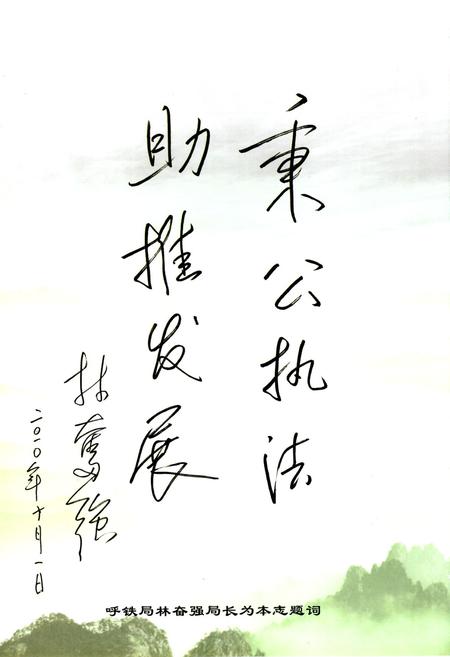 秉公执法
助推发展
林奋强
二〇一〇年十月一日
呼铁局林奋强局长为本志题词